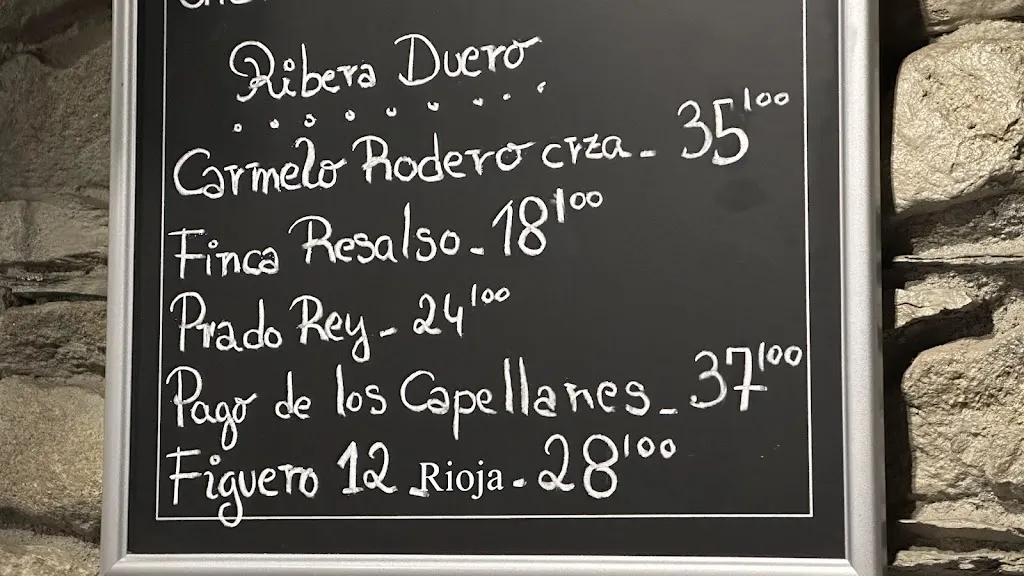 Ribera Duero
Carmelo Rodero crza - 35'00
Finca Resalso - 18'00
Prado Rey - 24'00
Pago de los Capellanes - 37'00
Figuero 12 - Rioja - 28'00